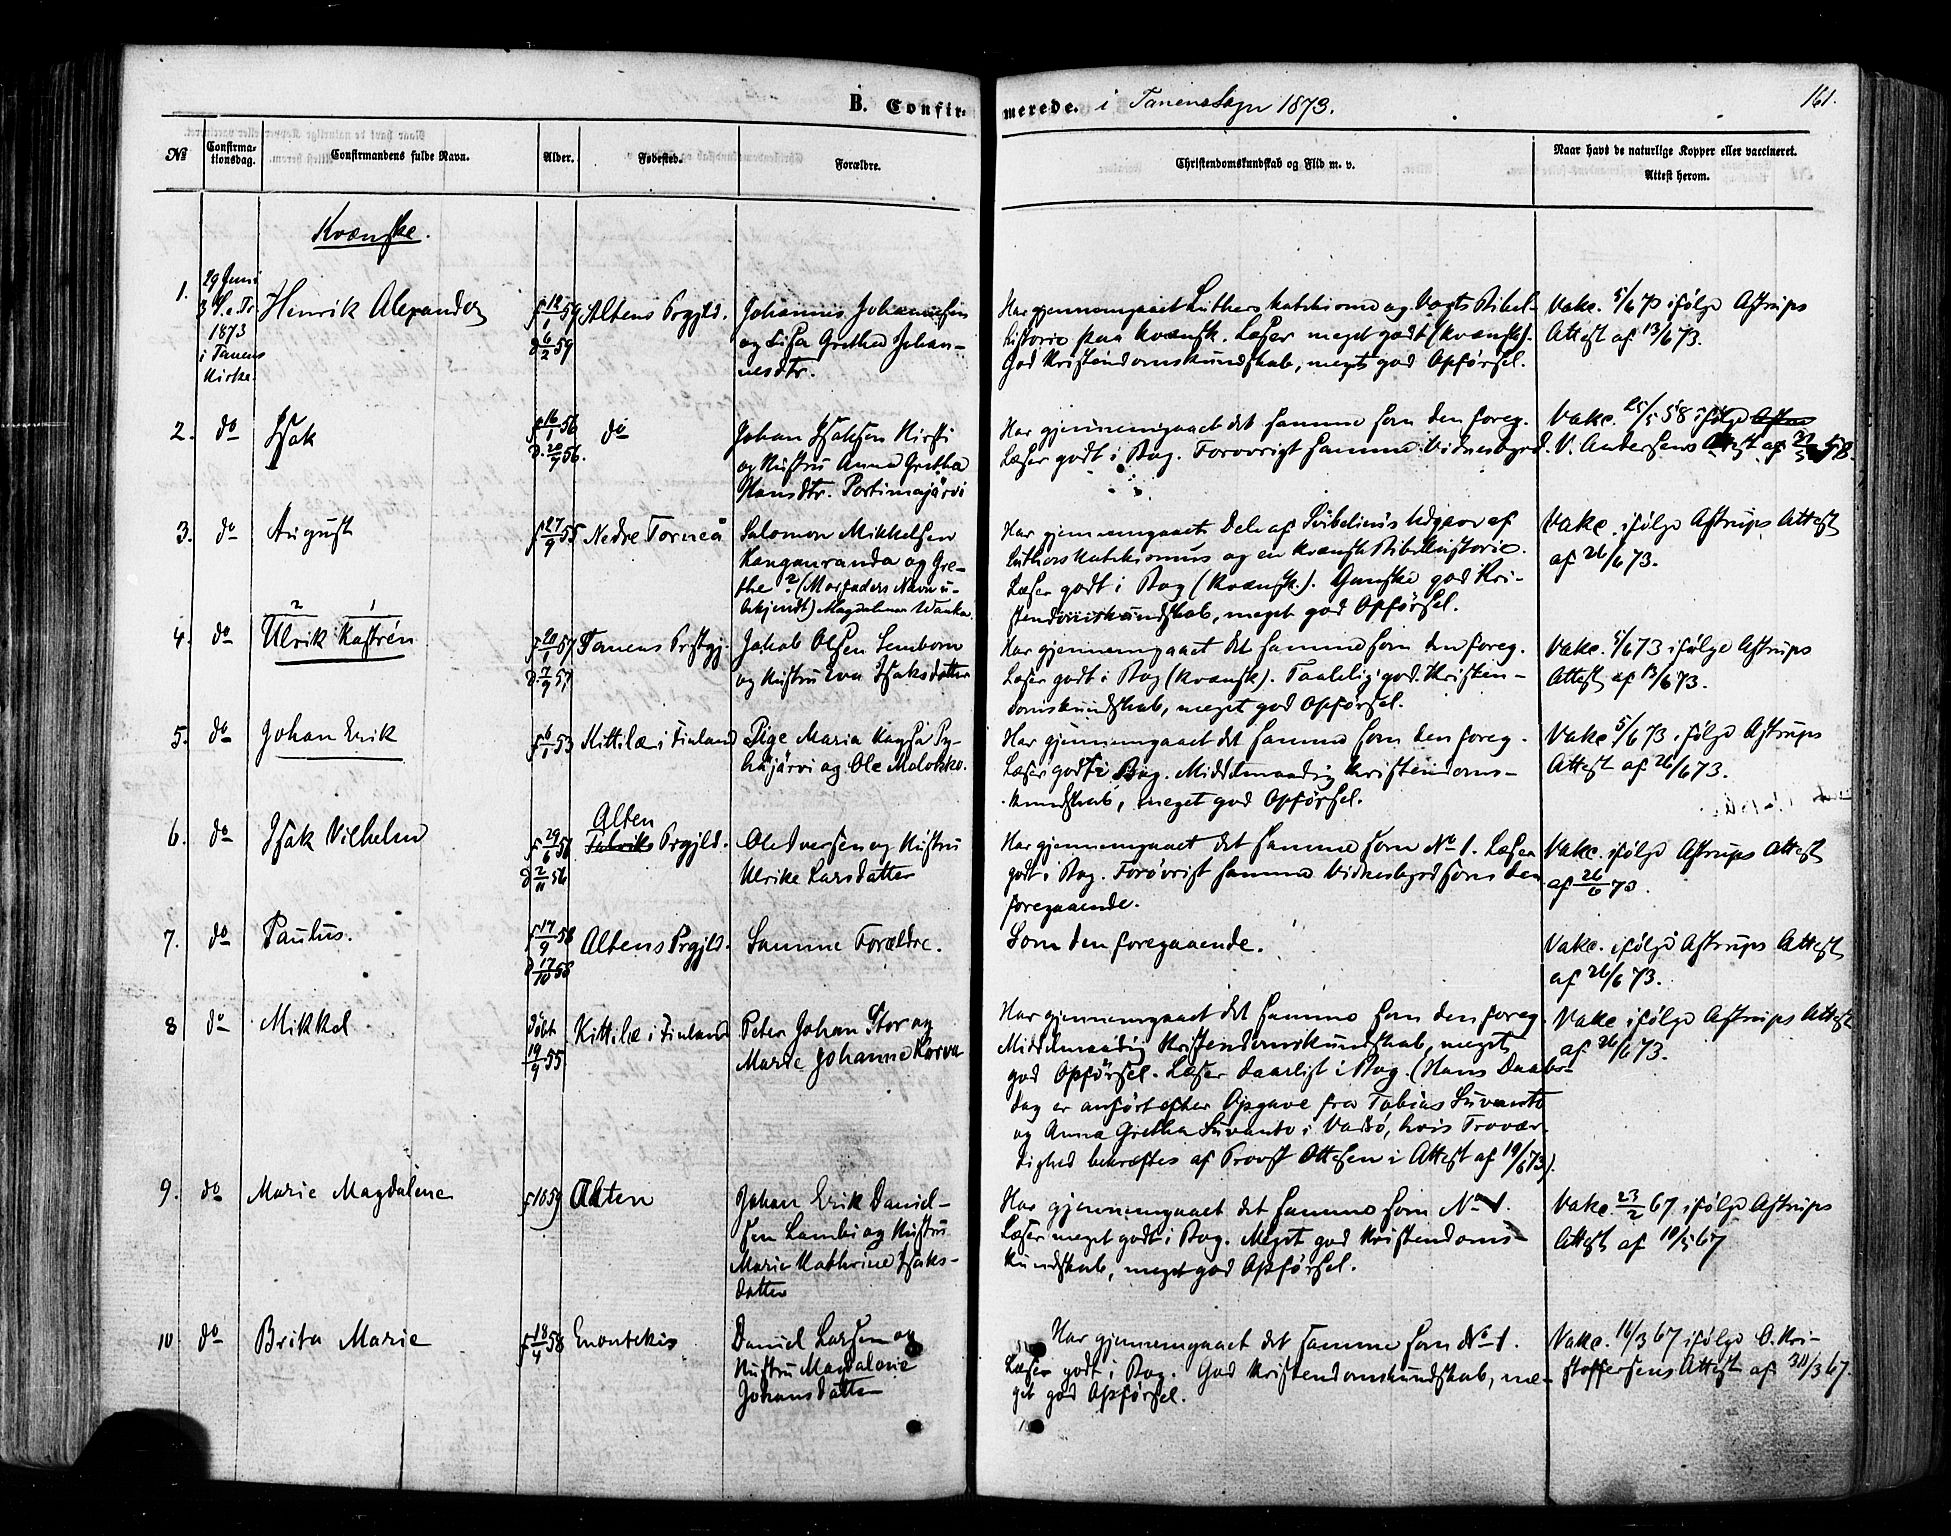 B. Confirmerede. i Tanens Sogn 1873.
161.
№
Confirmationsdag.
Confirmandens fulde Navn.
Alder.
Fødested.
Forældre.
Christendomskundskab og Flid m. v.
Naar havt de naturlige Kopper eller vaccineret.
Attest herom.
Kvænske.
1.
29 Juni
3 S. e. Tr.
1873
i Tanens
Kirke.
Henrik Alexander
f 12/1 59
d 6/2 59
Altens Prgjld.
Johannis Johannesen
og Lisa Grethe Johan-
nesdtr.
Har gjennemgaaet Luthers Katekisme og Vogts Bibel-
historie paa Kvænsk. Læser meget godt (Kvænsk).
God Kristendomskundskab, meget god Opførsel.
Vakc. 5/6 73 ifølge Astrups
Attest af 13/6 73.
2.
do
Isak
f 16/1 56
d. 20/9 56.
do
Johan Isaksen Kirsti
og Hustru Anna Gretha
Hansdtr. Portimojärvi
Har gjennemgaaet det samme som den foreg.
Læser godt i Bog. Forøvrigt samme Vidnesbyrd.
Vakc. 25/5 58 ifølge
V. Andersens Attest af 58.
3.
do
August
f 27/9 55
Nedre Torneå
Salomon Mikkelsen
Kanganranda og Gre-
the ? (Morfaders Navn u-
bekjendt) Magdalena Wanka.
Har gjennemgaaet Dele af Svibelius Udgave af
Luthers Katekismus og en kvænsk Bibelhistorie.
Læser godt i Bog (Kvænsk.). Ganske god Kri-
stendomskundskab, meget god Opførsel.
Vakc. ifølge Astrups Attest
af 26/6 73.
4.
do
2 1
Ulrik Kastrén
f 20/1 57
d. 7/9 57
Tanens Prstgj.
Jakob Olsen Lemborn
og Hustru Eva Isaksdatter
Har gjennemgaaet det samme som den foreg.
Læser godt i Bog (Kvænsk). Taalelig god Kristen-
domskundskab, meget god Opførsel.
Vakc. 5/6 73 ifølge Astrups
Attest af 13/6 73.
5.
do
Johan Erik
f 6/1 53
Kittilæ i Finland
Pige Maria Kaysa Py-
häjärvi og Ole Molokko.
Har gjennemgaaet det samme som den foreg.
Læser godt i Bog. Middelmaadig Kristendoms-
kundskab, meget god Opførsel.
Vakc 5/6 73 ifølge Astrups
Attest af 26/6 73.
6.
do
Isak Vilhelm
f 29/6 56
d 2/11 56
Alten
Talviks Prgjld.
Ole Iversen og Hustru
Ulrike Larsdatter
Har gjennemgaaet det samme som No 1. Læser
godt i Bog. Forøvrigt samme Vidnesbyrd som den
foregaaende.
Vakc. ifølge Astrups Attest
af 26/6 73.
7.
do
Paulus.
f 17/9 58
d 17/10 58
Altens Prgjld.
Samme Forældre.
Som den foregaaende.
Vakc. ifølge Astrups Attest
af 26/6 73.
8
do
Mikkel
døbt
19/9 55
Kittilæ i Finland
Peter Johan Stor og
Marie Johanne Korva
Har gjennemgaaet det samme som den foreg.
Middelmaadig Kristendomskundskab, meget
god Opførsel. Læser daarligt i Bog. (Hans Daabs-
dag er anført efter Opgave fra Tobias Suvanto
og Anna Gretha Suvanto i Vadsø, hvis Trovær-
dighed bekræftes af Provst Ottesen i Attest af 19/6 73).
Vakc ifølge Astrups Attest
af 26/6 73.
9.
do
Marie Magdalene
Alten
Johan Erik Daniel-
sen Lambi og Hustru
Marie Kathrine Isaks-
datter
Har gjennemgaaet det samme som No 1.
Læser meget godt i Bog. Meget god Kristendoms-
kundskab, meget god Opførsel.
Vakc. 23/2 67 ifølge Astrups
Attest af 10/5 67
10
do
Brita Marie
f 18/4 58
Enontekis
Daniel Larsen og
Hustru Magdalene
Johansdatter
Har gjennemgaaet det samme som No 1.
Læser godt i Bog. God Kristendomskundskab, me-
get god Opførsel.
Vakc. 16/3 67 ifølge O. Kri-
stoffersens Attest af 30/3 67.